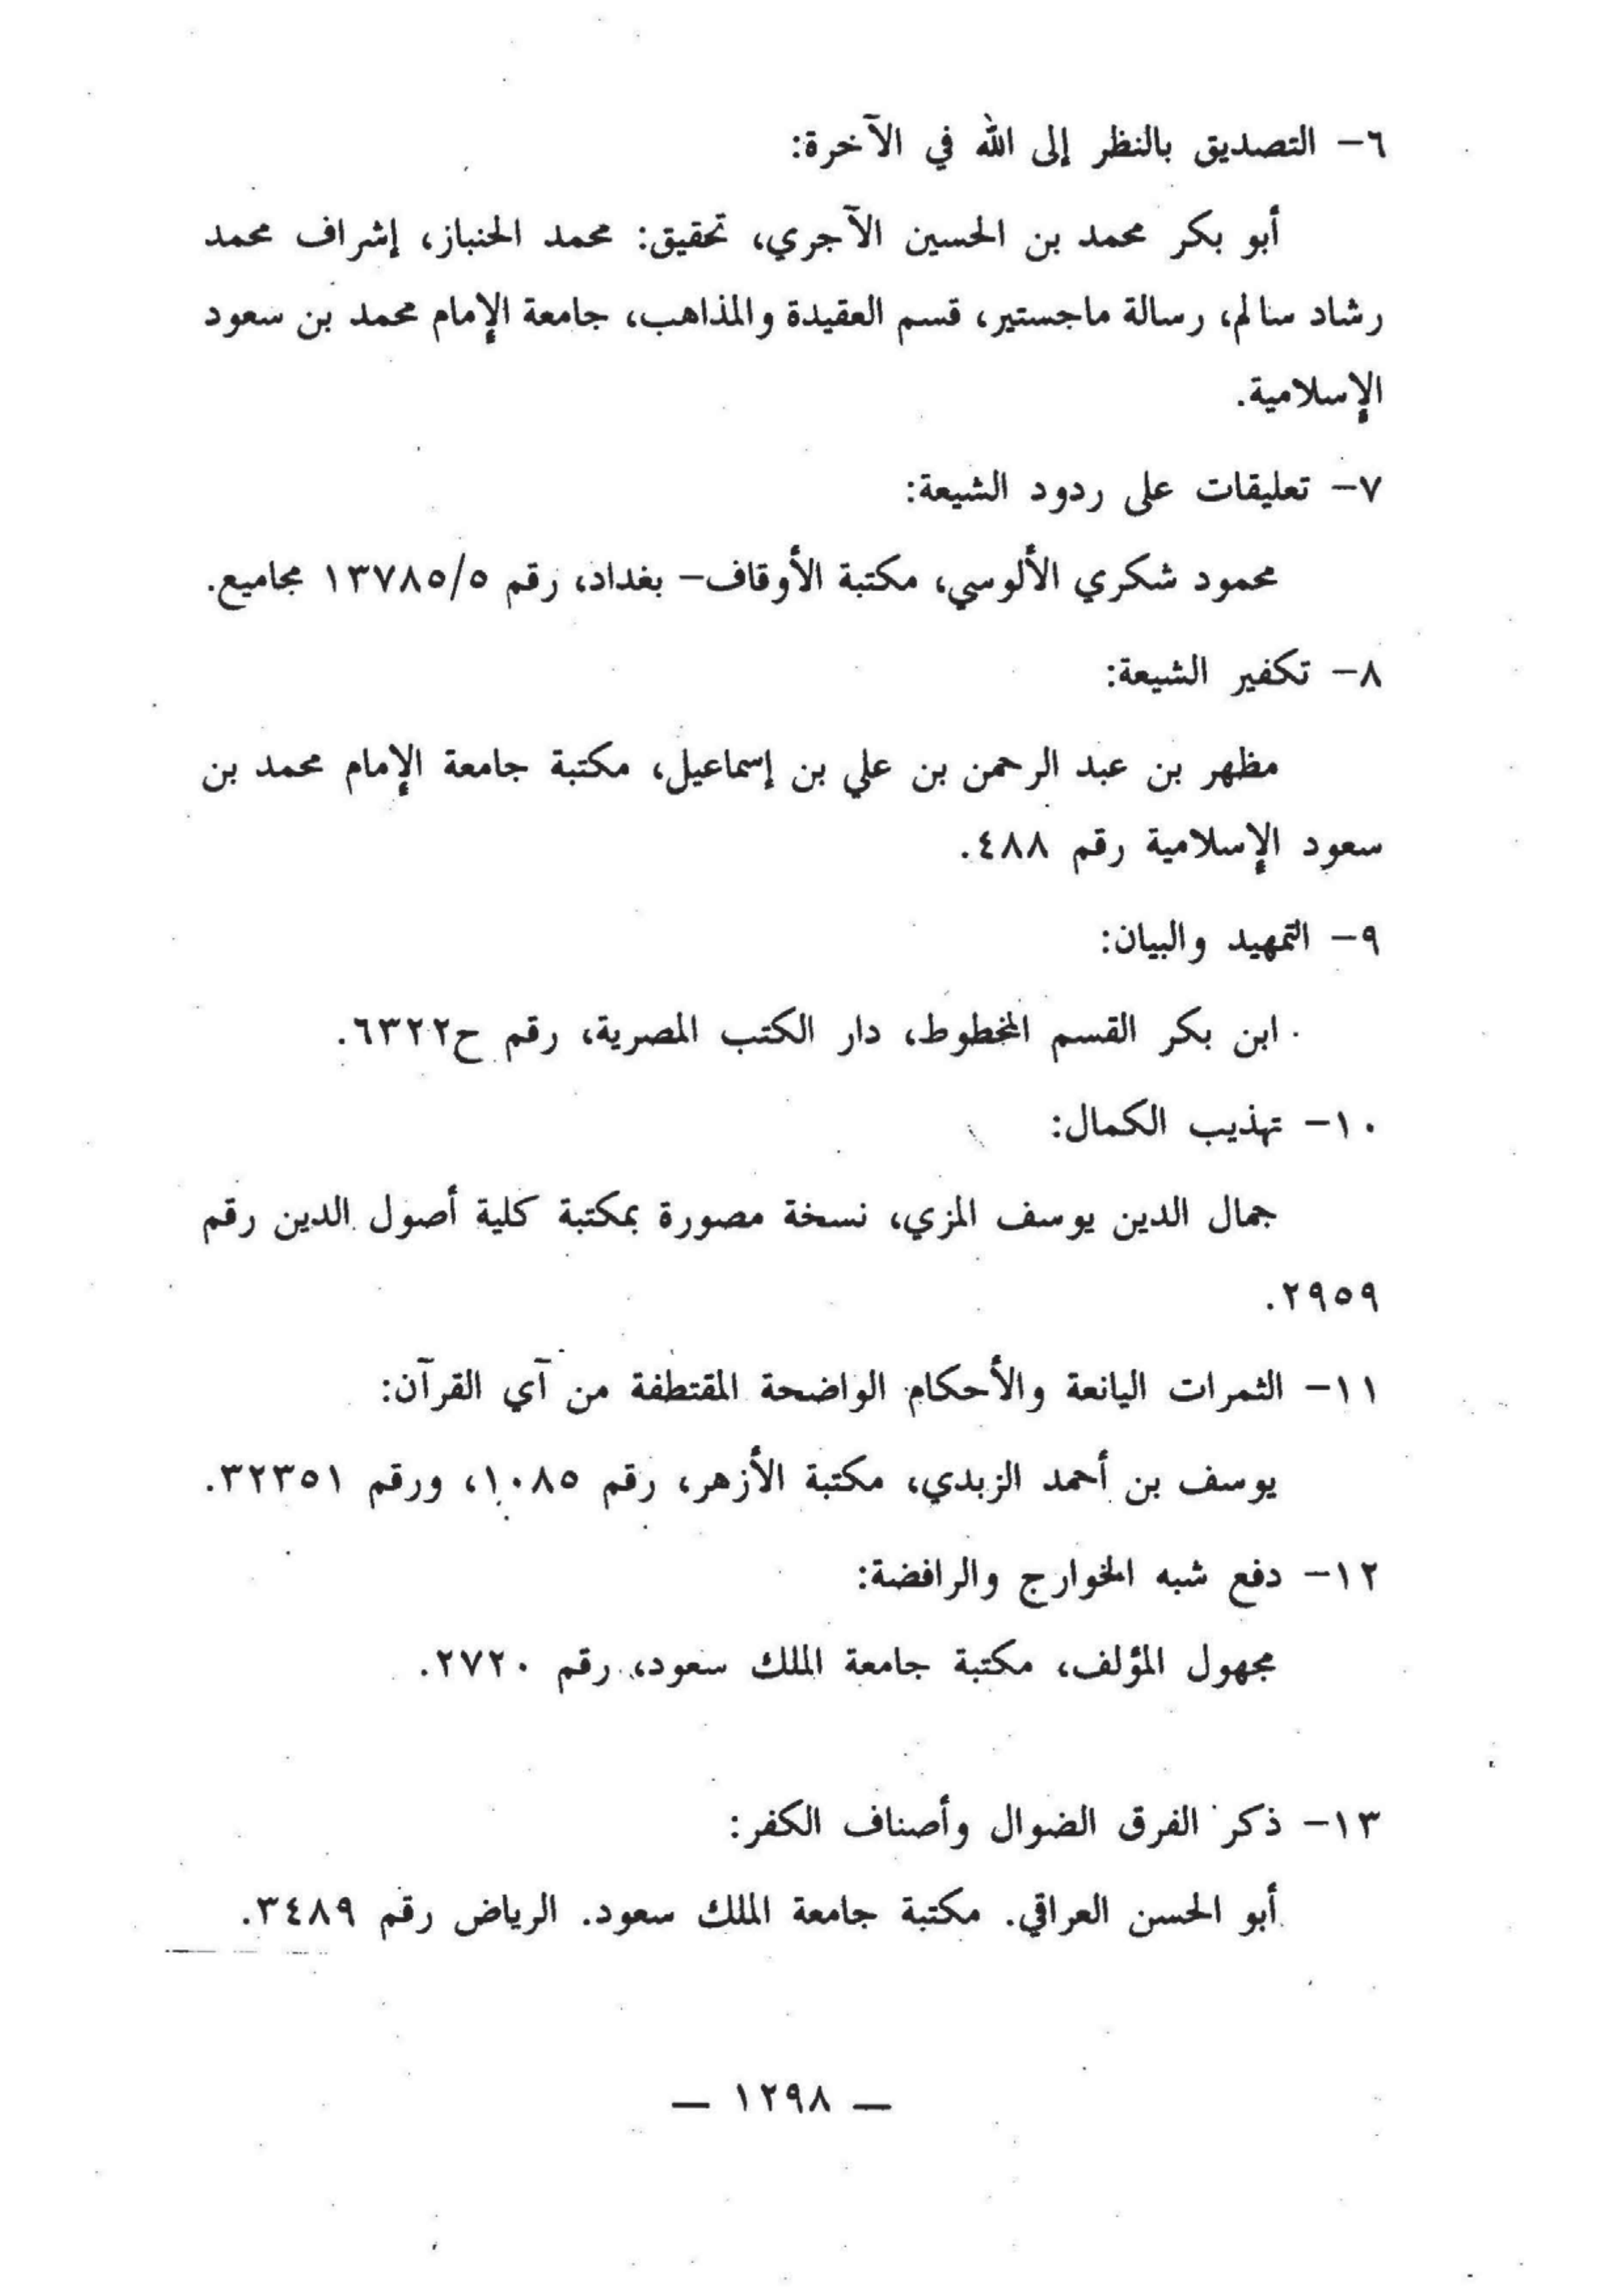 ٦- التصديق بالنظر إلى الله في الآخرة:
أبو بكر محمد بن الحسين الآجري، تحقيق: محمد الجنباز، إشراف محمد
رشاد سالم، رسالة ماجستير، قسم العقيدة والمذاهب، جامعة الإمام محمد بن سعود
الإسلامية.
٧- تعليقات على ردود الشيعة:
محمود شكري الألوسي، مكتبة الأوقاف- بغداد، رقم ١٣٧٨٥/٥ مجاميع.
٨- تكفير الشيعة:
مظهر بن عبد الرحمن بن علي بن إسماعيل، مكتبة جامعة الإمام محمد بن
سعود الإسلامية رقم ٤٨٨.
٩- التمهيد والبيان:
ابن بكر القسم المخطوط، دار الكتب المصرية، رقم ح٦٣٢٢.
١٠- تهذيب الكمال:
جمال الدين يوسف المزي، نسخة مصورة بمكتبة كلية أصول الدين رقم
٢٩٥٩.
١١- الثمرات اليانعة والأحكام الواضحة المقتطفة من آي القرآن:
يوسف بن أحمد الزبدي، مكتبة الأزهر، رقم ١٠٨٥، ورقم ٣٢٣٥١.
١٢- دفع شبه الخوارج والرافضة:
مجهول المؤلف، مكتبة جامعة الملك سعود، رقم ٢٧٢٠.
١٣- ذكر الفرق الضوال وأصناف الكفر:
أبو الحسن العراقي. مكتبة جامعة الملك سعود. الرياض رقم ٣٤٨٩.
— ١٢٩٨ —